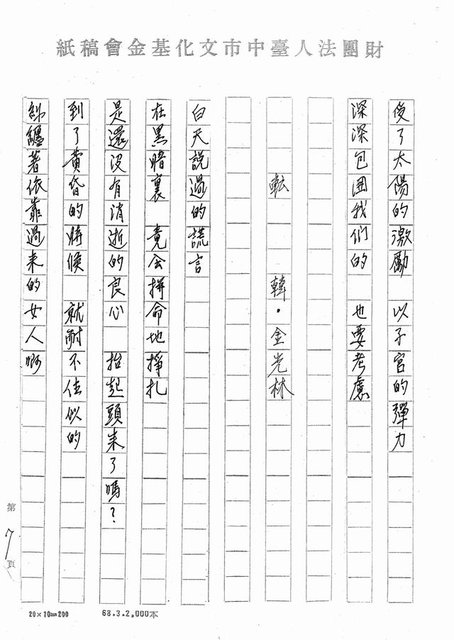 財團法人臺中市文化基金會稿紙
受了太陽的激勵　以子宮的彈力
深深包圍我們的　也要考慮
転　韓・金光林
白天說過的謊言
在黑暗裏　竟会拼命地掙扎
是還沒有消逝的良心　抬起頭来了嗎？
到了黃昏的時候　就耐不住似的
糾纏著依靠過来的女人啊
第7頁
20×10=200
68.3.2,000本